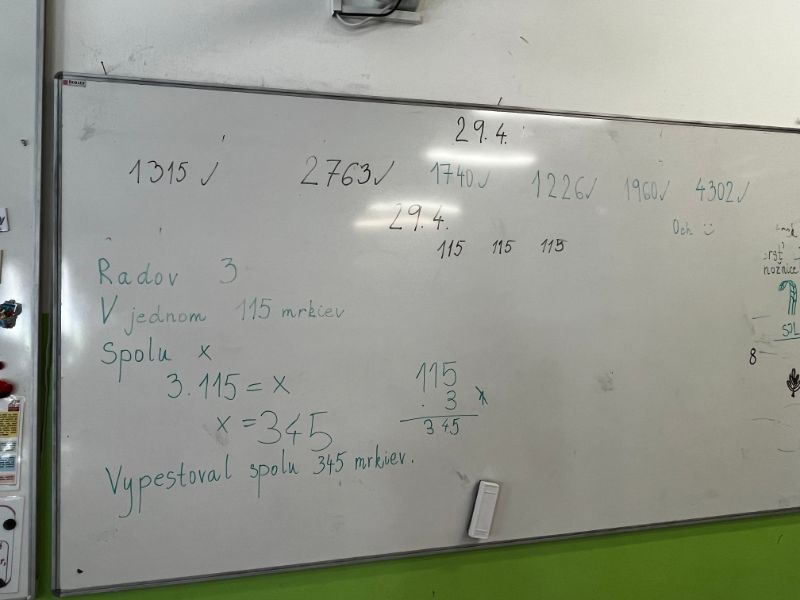 29.4.
1315 ✓ 2763✓ 1740✓ 1226✓ 1960✓ 4302✓
29.4.
115 115 115
Radov 3
V jednom 115 mrkiev
Spolu x
3.115 = x
x = 345
115
. 3 x
345
Vypestoval spolu 345 mrkiev.
nožnice
8